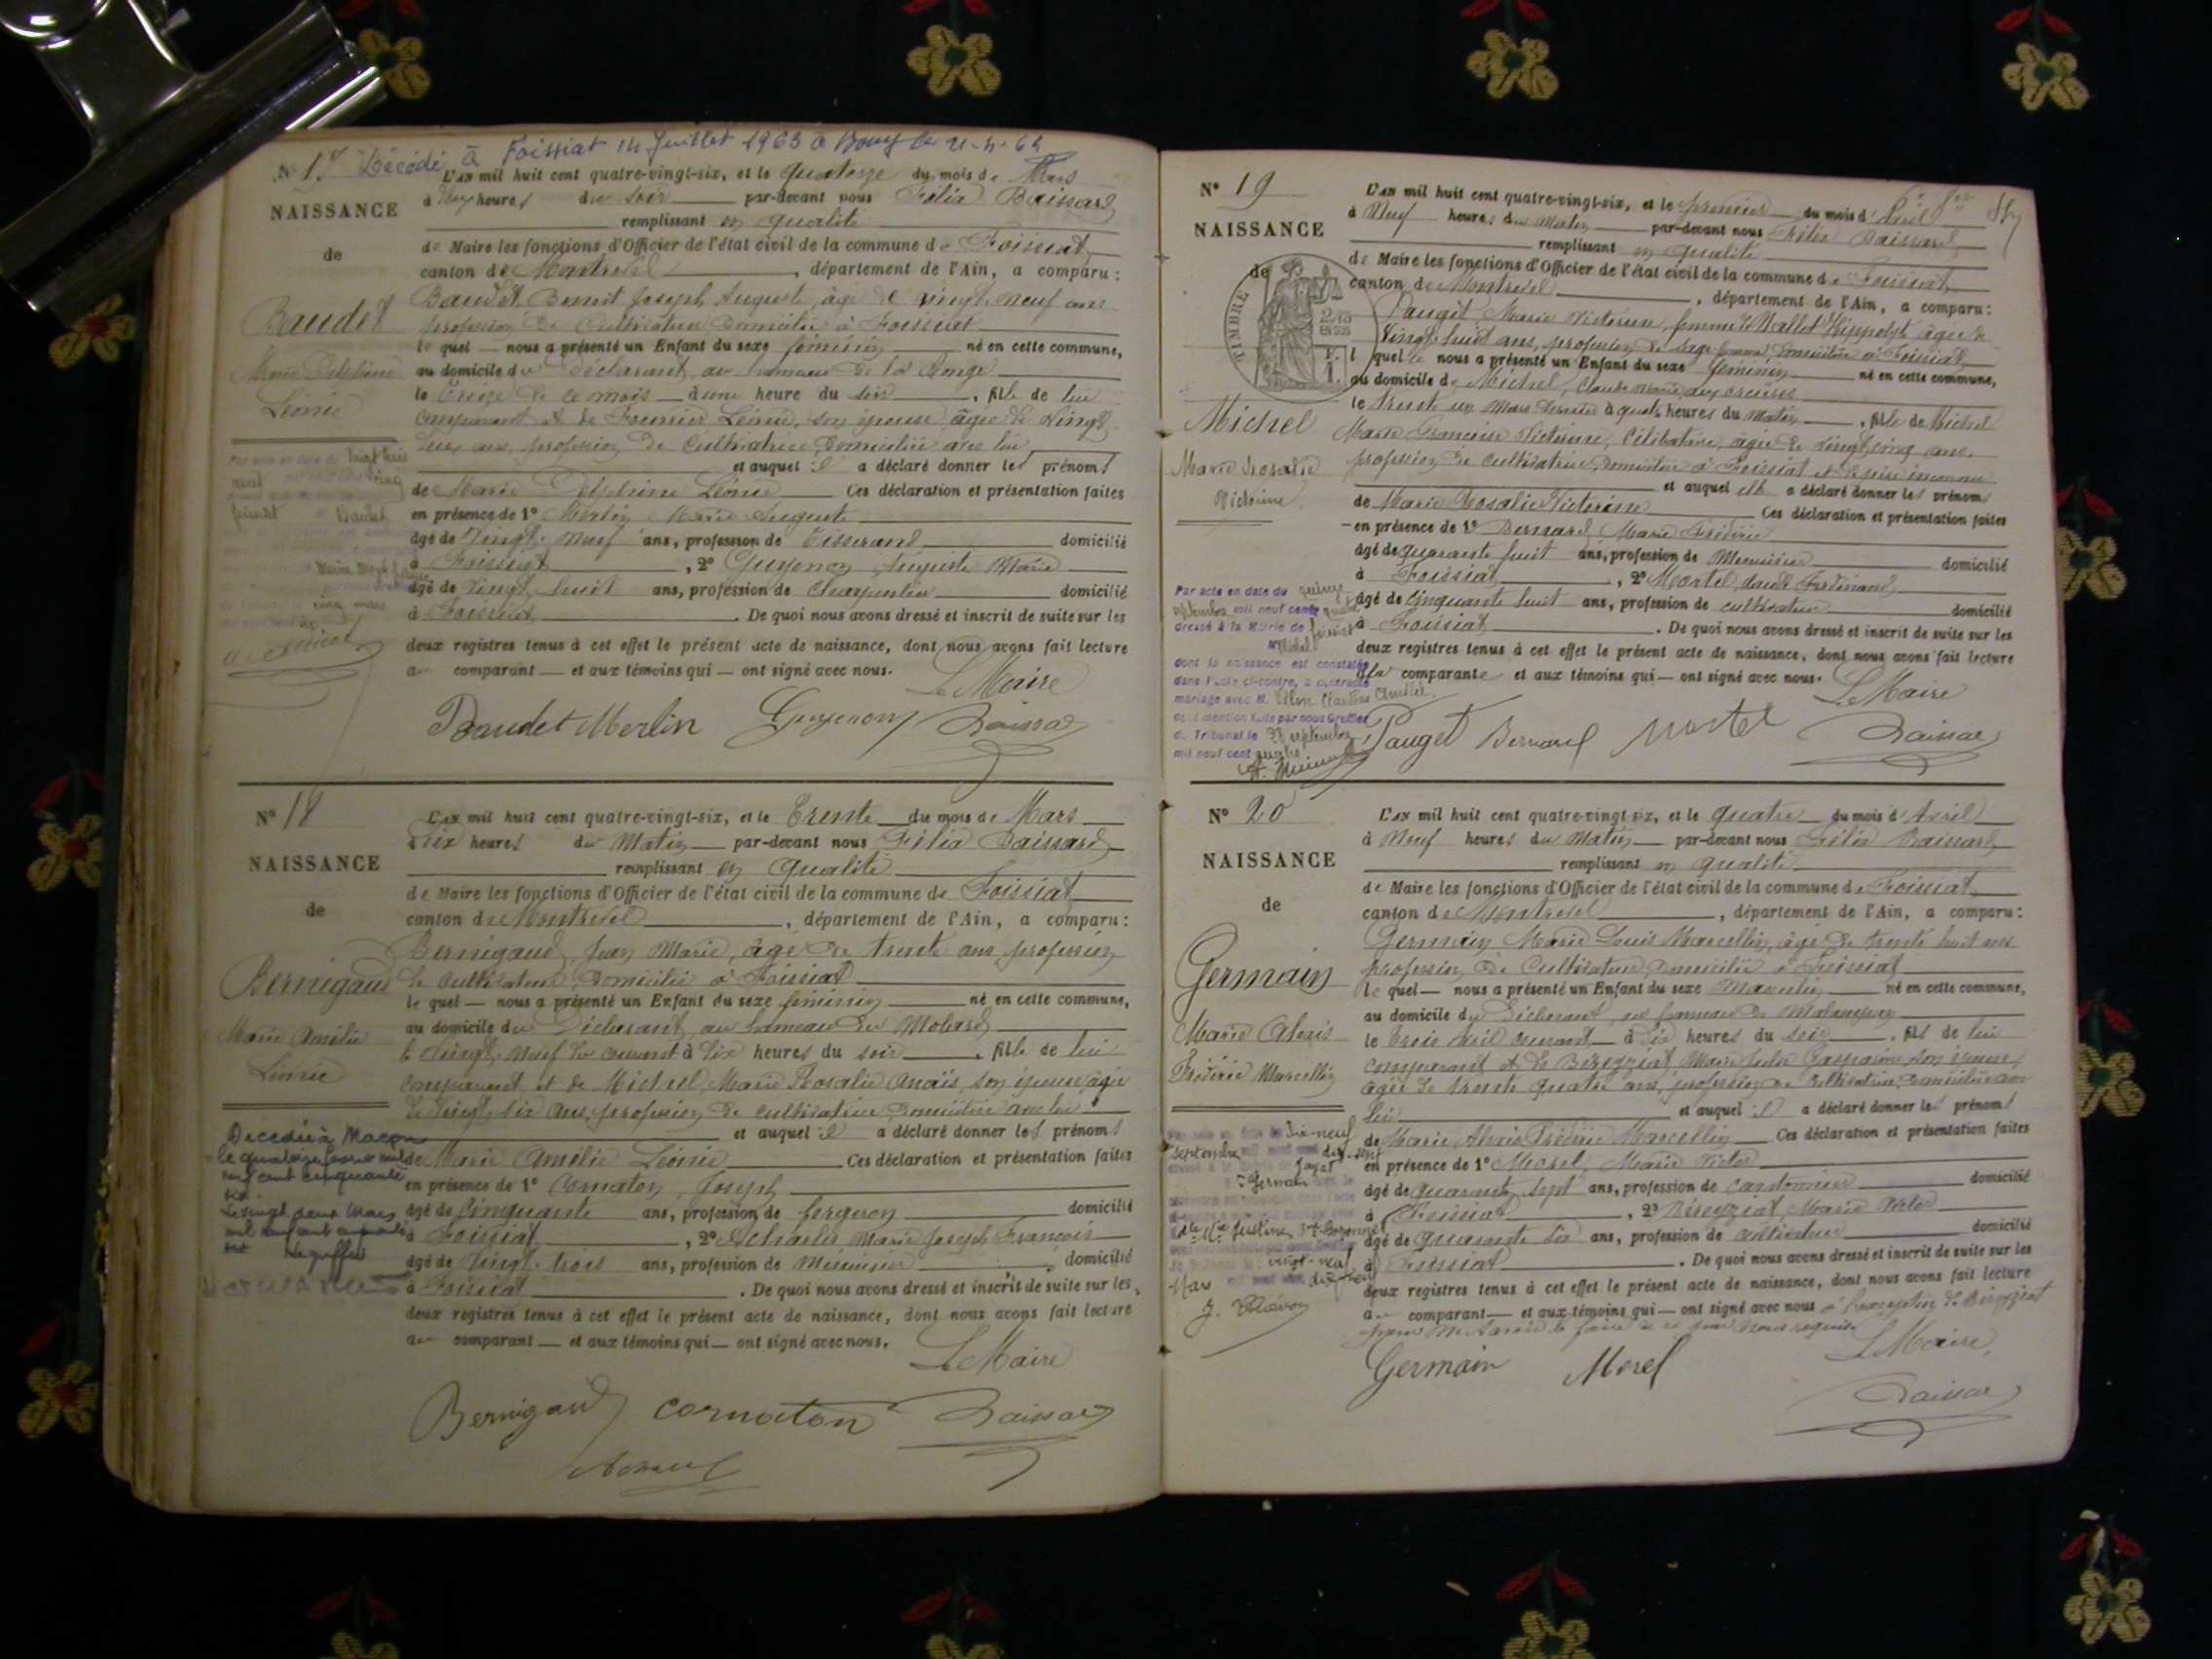 Décédé à Foissiat 14 Juillet 1963
N° 17
NAISSANCE
de
Baudet
Marie Delphine
Léonie
L'AN mil huit cent quatre-vingt-six, et le quatorze du mois de Mars
à heures du soir par-devant nous Félix
remplissant en qualité
de Maire les fonctions d'Officier de l'état civil de la commune de Foissiat
canton de Montrevel, département de l'Ain, a comparu :
Baudet Benoit Joseph Auguste, âgé de vingt-neuf ans
profession de Cultivateur domicilié à Foissiat
le quel — nous a présenté un Enfant du sexe féminin né en cette commune,
au domicile du déclarant, au hameau de la
le treize de ce mois à une heure du soir, fille de lui
comparant et de Fournier Léonie, son épouse âgée de vingt
deux ans, profession de Cultivatrice domiciliée avec lui
et auquel il a déclaré donner les prénoms
de Marie Delphine Léonie Ces déclaration et présentation faites
en présence de 1° Merlin Marie Auguste
âgé de vingt-neuf ans, profession de tisserand domicilié
à Foissiat, 2° Guyenon Auguste Marie
âgé de vingt huit ans, profession de Charpentier domicilié
à Foissiat. De quoi nous avons dressé et inscrit de suite sur les
deux registres tenus à cet effet le présent acte de naissance, dont nous avons fait lecture
au comparant — et aux témoins qui — ont signé avec nous.
Le Maire
Baudet Merlin Guyenon
N° 18
NAISSANCE
de
Bernigaud
Marie Amélie
Léonie
Décédée à Macon
L'AN mil huit cent quatre-vingt-six, et le trente du mois de Mars
à dix heures du Matin par-devant nous Félix
remplissant en qualité
de Maire les fonctions d'Officier de l'état civil de la commune de Foissiat
canton de Montrevel, département de l'Ain, a comparu :
Bernigaud Jean Marie, âgé de trente ans profession
de Cultivateur, domicilié à Foissiat
le quel — nous a présenté un Enfant du sexe féminin né en cette commune,
au domicile du Déclarant, au hameau du Molard
le vingt-neuf du courant à dix heures du soir, fille de lui
comparant et de Michel Marie Rosalie Anaïs, son épouse âgée
de vingt-six ans, profession de cultivatrice domiciliée avec lui
et auquel il a déclaré donner les prénoms
de Marie Amélie Léonie Ces déclaration et présentation faites
en présence de 1° Cornaton, Joseph
âgé de Cinquante ans, profession de forgeron domicilié
à Foissiat, 2° Marie Joseph François
âgé de vingt-trois ans, profession de Menuisier domicilié
à Foissiat. De quoi nous avons dressé et inscrit de suite sur les
deux registres tenus à cet effet le présent acte de naissance, dont nous avons fait lecture
au comparant — et aux témoins qui — ont signé avec nous.
Le Maire
Bernigaud Cornaton
N° 19
NAISSANCE
de
TIMBRE
Michel
Marie Rosalie
Victorine
Par acte en date du quinze
septembre mil neuf cent quatre
dressé à la Mairie de Foissiat
Michel
dont la naissance est constatée
dans l'acte ci-contre, a contracté
mariage avec M.
mention faite par nous Greffier
du Tribunal le 28 septembre
mil neuf cent quatre
L'AN mil huit cent quatre-vingt-six, et le premier du mois d'Avril
à Neuf heures du Matin par-devant nous Félix
remplissant en qualité
de Maire les fonctions d'Officier de l'état civil de la commune de Foissiat
canton de Montrevel, département de l'Ain, a comparu :
Pauget Marie Victorine, femme de Mallet Hippolyte âgée de
vingt-huit ans, profession de sage femme, domiciliée à Foissiat
la quelle nous a présenté un Enfant du sexe féminin né en cette commune,
au domicile de Michel, Claude Marie
le trente un Mars dernier à quatre heures du Matin, fille de Michel
Marie Françoise Victorine, Célibataire, âgée de vingt cinq ans,
profession de Cultivatrice, domiciliée à Foissiat et de père inconnu
et auquel elle a déclaré donner les prénoms
de Marie Rosalie Victorine Ces déclaration et présentation faites
en présence de 1° Bernard Marie Frédéric
âgé de quarante huit ans, profession de Menuisier domicilié
à Foissiat, 2° Mortel Claude Ferdinand
âgé de cinquante huit ans, profession de cultivateur domicilié
à Foissiat. De quoi nous avons dressé et inscrit de suite sur les
deux registres tenus à cet effet le présent acte de naissance, dont nous avons fait lecture
à la comparante et aux témoins qui — ont signé avec nous.
Le Maire
Pauget Bernard Mortel
N° 20
NAISSANCE
de
Germain
Marie Alexis
Frédéric Marcellin
L'AN mil huit cent quatre-vingt-six, et le quatre du mois d'Avril
à Neuf heures du Matin par-devant nous Félix
remplissant en qualité
de Maire les fonctions d'Officier de l'état civil de la commune de Foissiat
canton de Montrevel, département de l'Ain, a comparu :
Germain Marie Louis Marcellin, âgé de trente huit ans
profession de Cultivateur domicilié à Foissiat
le quel — nous a présenté un Enfant du sexe Masculin né en cette commune,
au domicile du Déclarant, au hameau de
le trois Avril courant à dix heures du soir, fils de lui
comparant et de Béreyziat Marie Julie Gasparine, son épouse,
âgée de trente quatre ans, profession de Cultivatrice, domiciliée avec
lui et auquel il a déclaré donner les prénoms
de Marie Alexis Frédéric Marcellin Ces déclaration et présentation faites
en présence de 1° Morel, Marie Victor
âgé de quarante sept ans, profession de cantonnier domicilié
à Foissiat, 2° Béreyziat Marie
âgé de quarante six ans, profession de cultivateur domicilié
à Foissiat. De quoi nous avons dressé et inscrit de suite sur les
deux registres tenus à cet effet le présent acte de naissance, dont nous avons fait lecture
au comparant — et aux témoins qui — ont signé avec nous à l'exception de Béreyziat
Le Maire
Germain Morel